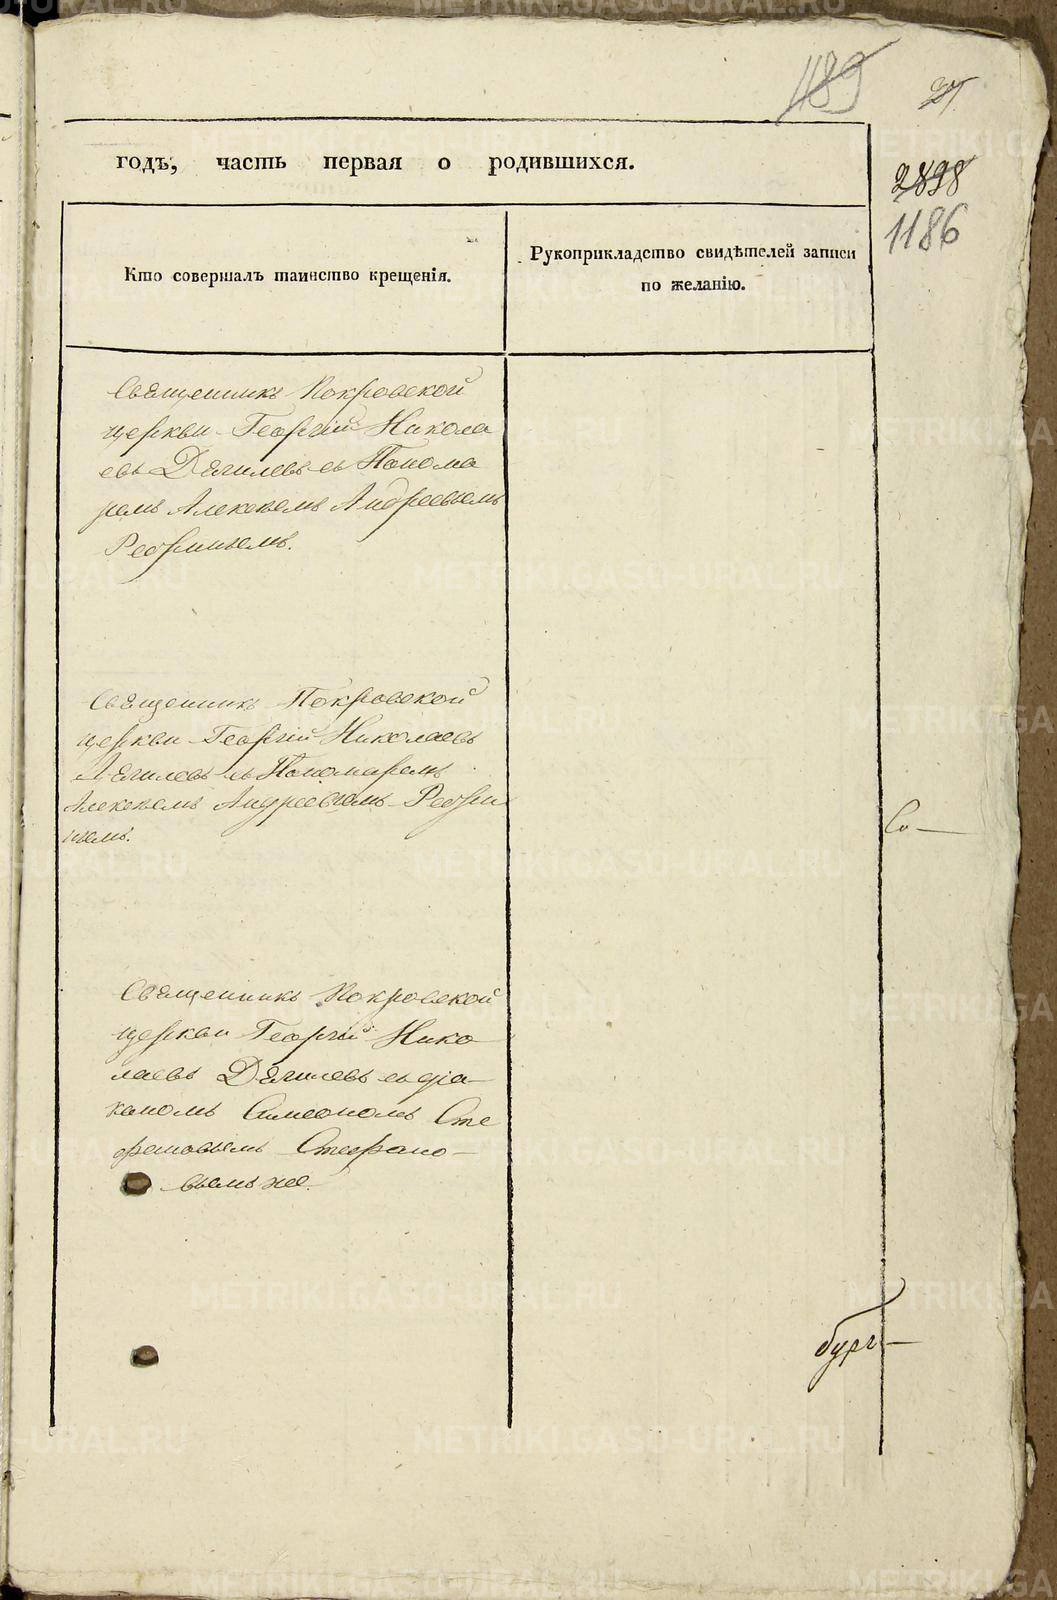 1189
27
годъ, часть первая о родившихся.
2898
1186
Кто совершалъ таинство крещенія.
Рукоприкладство свидѣтелей записи
по желанію.
Священникъ Покровской
церкви Георгій Никола
евъ Дягилевъ съ Понома
ремъ Алексѣемъ Андреевымъ
Священникъ Покровской
церкви Георгій Николаевъ
Дягилевъ съ Пономаремъ
Алексѣемъ Андреевымъ
нымъ.
Со—
Священникъ Покровской
церкви Георгій Нико
лаевъ Дягилевъ съ діа-
кономъ Симеономъ Сте
фановымъ Стефано-
вымъ же.
METRIKI.GASO-URAL.RU